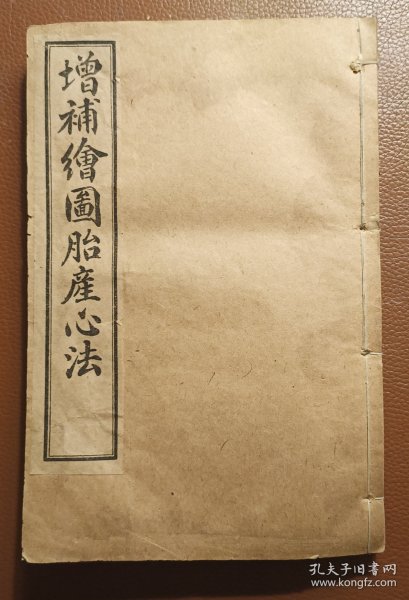 增補繪圖胎產心法
孔夫子旧书网
www.kongfz.com